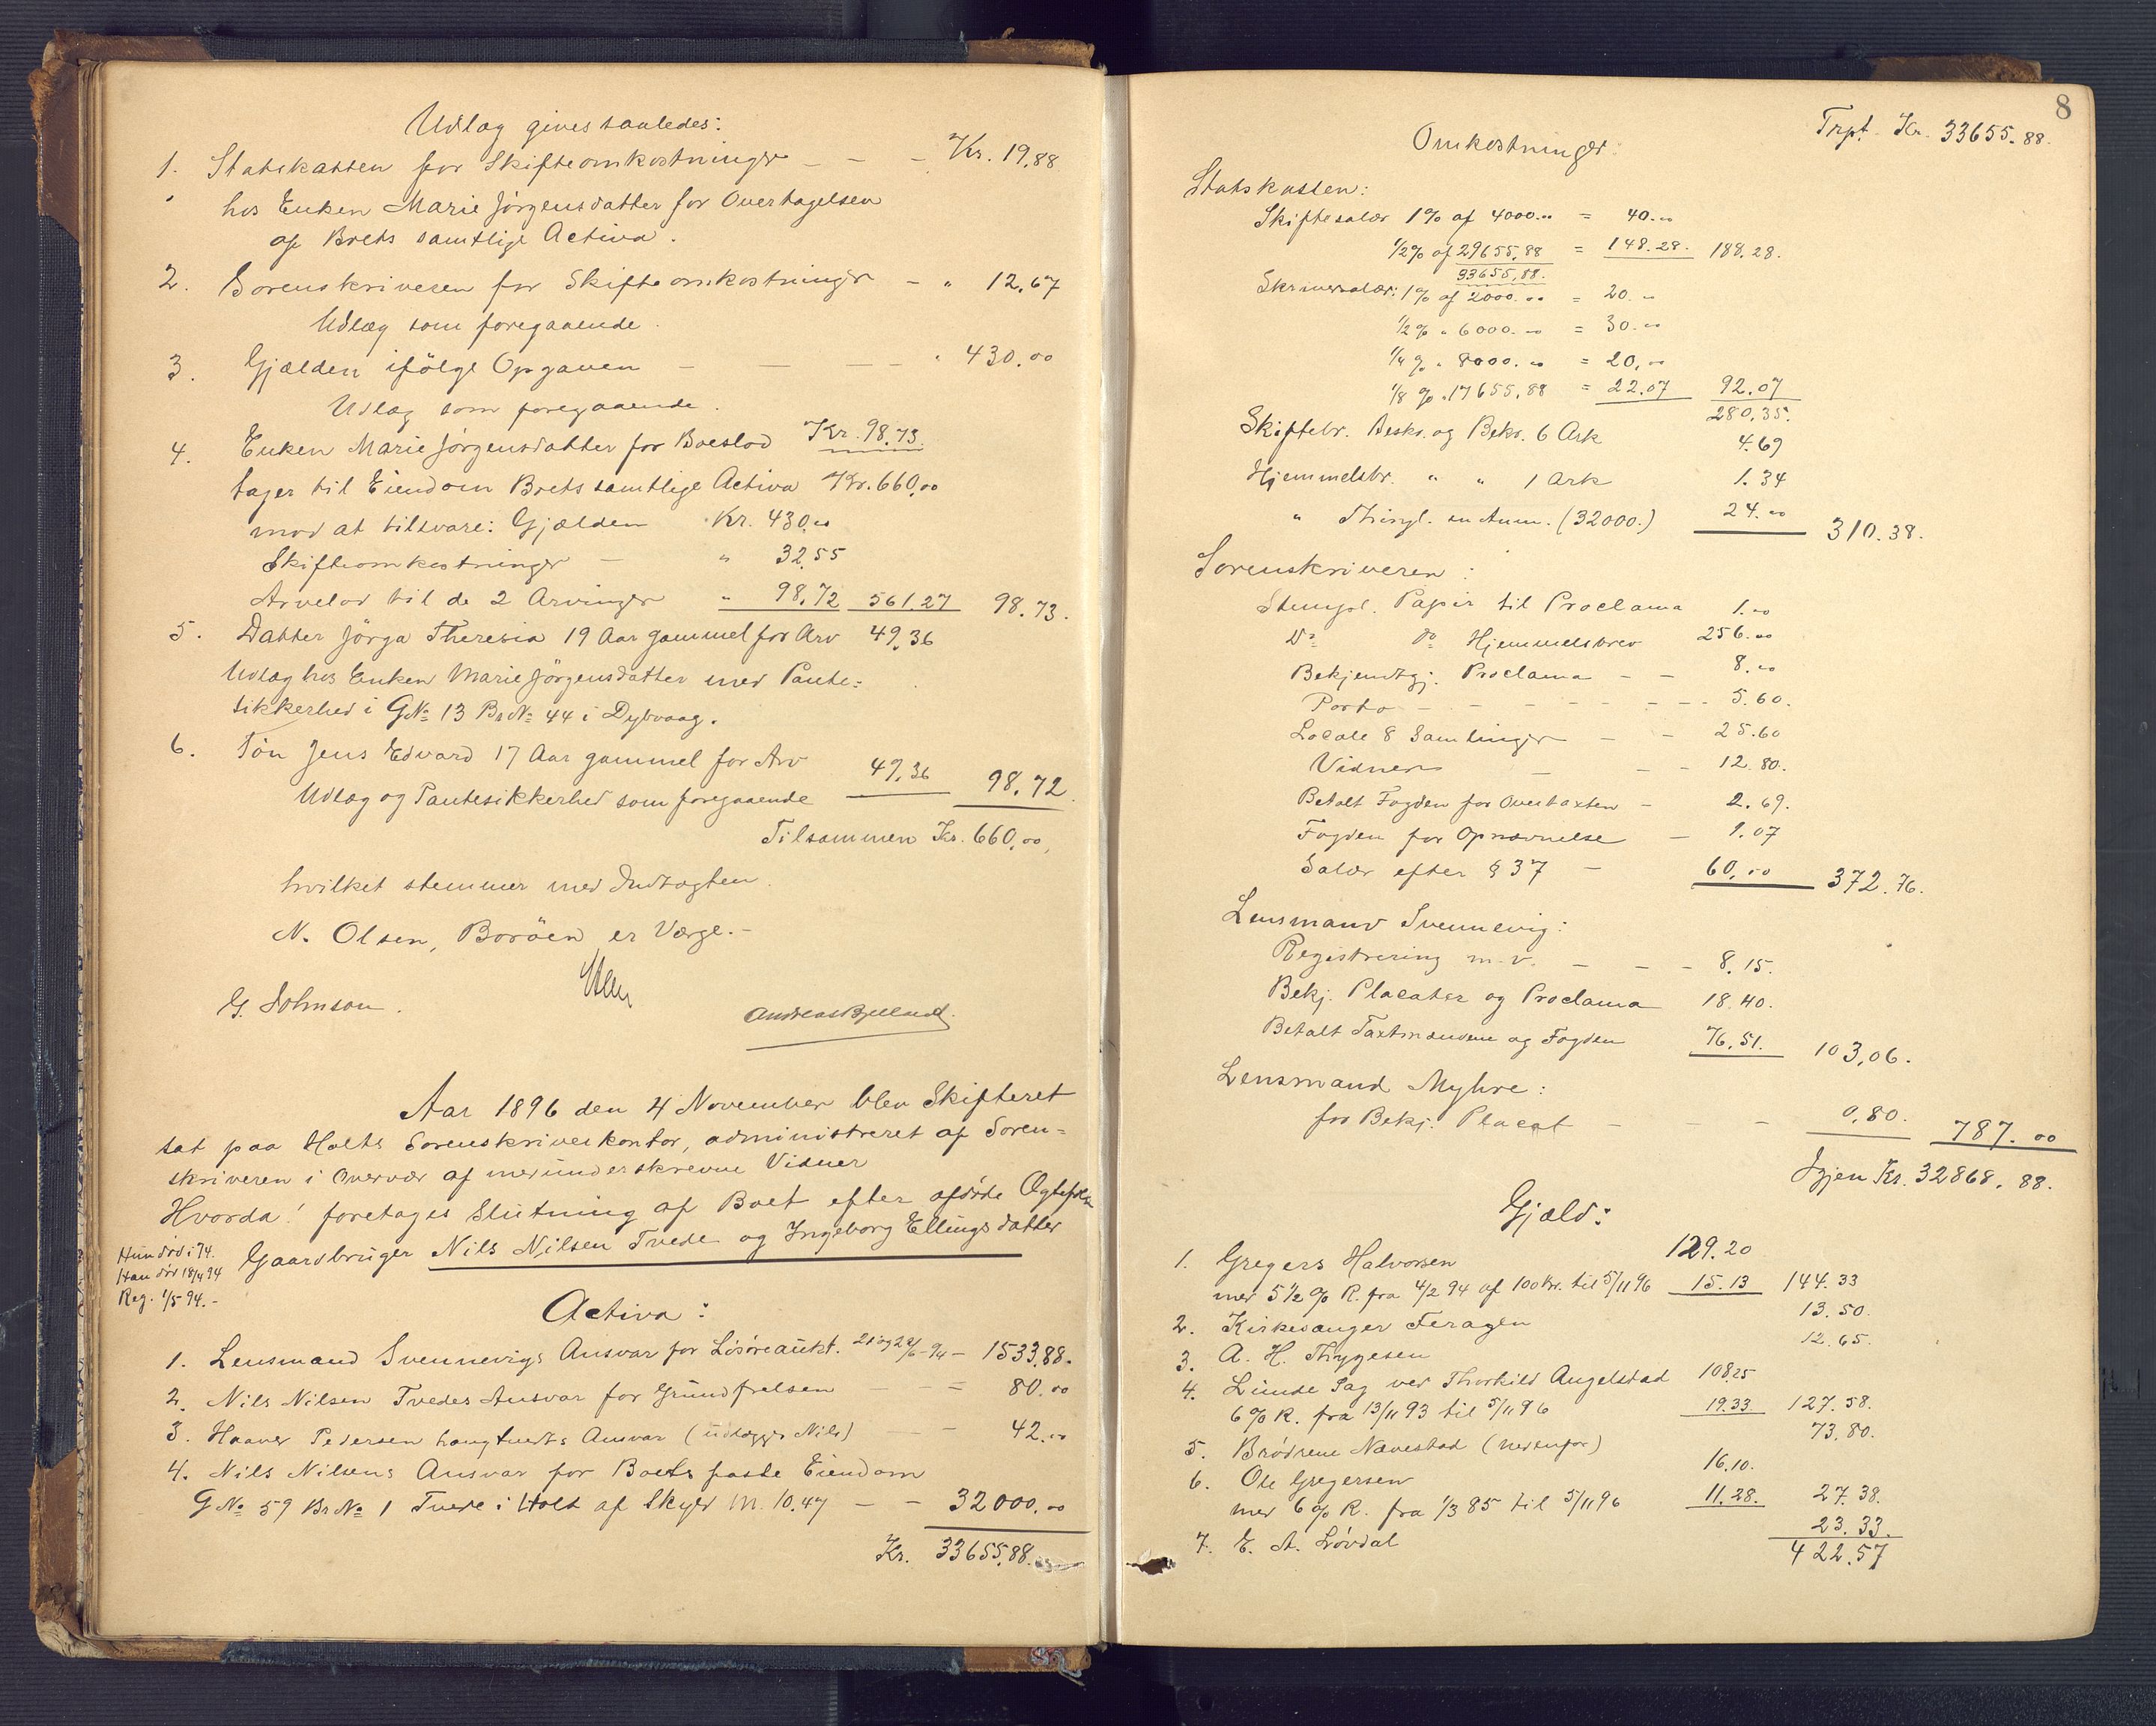 Udlæg gives saaledes:
1. Statskassen for Skifteomkostninger — — - Kr. 19,88
hos Enken Marie Jörgensdatter for Overtagelsen
af Boets samtlige Activa.
2. Sorenskriveren for Skifteomkostninger - " 12,67
Udlæg som foregaaende.
3. Gjælden ifölge Opgaven — — — " 430.00
Udlæg som foregaaende.
4. Enken Marie Jörgensdatter for Boeslod Kr. 98.73.
tager til Eiendom Boets samtlige Activa Kr. 660,00
mod at tilsvare: Gjælden Kr. 430,00
Skifteomkostninger — " 32,55
Arvelod til de 2 Arvinger " 98,72 561.27 98.73.
5. Datter Jörga Theresia 19 Aar gammel for Arv 49,36
Udlæg hos Enken Marie Jörgensdatter med Pante-
sikkerhed i G№ 13 Br№ 44 i Dybvaag.
6. Sön Jens Edvard 17 Aar gammel for Arv
Udlæg og Pantesikkerhed som foregaaende 49,36 98,72
Tilsammen Kr. 660,00,
hvilket stemmer med Indtægten.
N. Olsen, Boröen er Værge.-
G. Johnson. Andreas Bjelland.
Aar 1896 den 4 November blev Skifteret
sat paa Holts Sorenskriverkontor, administreret af Soren-
skriveren i Overvær af medunderskrevne Vidner
Hvorda! foretages Slutning af Boet efter afdöde Ægtefolk
Gaardbruger Nils Nilsen Tvede og Ingeborg Ellingsdatter
Hun död i 74.
Han död 18/4 94
Reg. 1/5 94.-
Activa:
1. Lensmand Svennevigs Ansvar for Lösöreaukt. 21 og 22/6-94 - 1533.88.
2. Nils Nilsen Tvedes Ansvar for Grundfrelsen — - = 80.00
3. Haaver Pedersen Langtvedts Ansvar (udlægges Nils) — - 42.00
4. Nils Nilsens Ansvar for Boets faste Eiendom
G№ 59 Br№ 1 Tvede i Holt af Skyld M. 10.47 — - 32000.00
Kr. 33655,88.
8
Trpt. Kr. 33655.88.
Omkostninger.
Statskassen:
Skiftesalær 1% af 4000.00 = 40.00
1/2% af 29655,88 = 148.28. 188.28.
33655,88.
Skriversalær: 1% af 2000.00 = 20.00
1/2% " 6000.00 = 30.00
1/4% " 8000.00 = 20,00
1/8% " 17655,88 = 22.07 92.07
280,35.
Skiftebr. Beskr. og Bekr. 6 Ark 4.69
Hjemmelsbr. " " 1 Ark 1.34
" Thingl. en Anm. (32000.) 24.00 310.38.
Sorenskriveren:
Stempl. Papir til Proclama 1.00
Do do Hjemmelsbrev 256.00
Bekjendtgj. Proclama - - 8.00
Porto - - - - - - 5.60.
Locale 8 Samlinger - - 25.60
Vidner — - - 12.80.
Betalt Fogden for Overtaxten - 2.69.
Fogden for Opnævnelse — 1.07
Salær efter § 37 - 60,00 372.76.
Lensmand Svennevig:
Registrering m.v. - - - 8.15.
Bekj. Placater og Proclama 18.40.
Betalt Taxtmændene og Fogden 76.51. 103,06.
Lensmand Myhre:
for Bekj. Placat - - 0,80. 787.00
Igjen Kr. 32868.88.
Gjæld:
1. Gregers Halvorsen 129.20
med 5 1/2 % R. fra 4/2 94 af 100 Kr. til 5/11 96 15.13 144.33
2. Kirkesanger Feragen 13.50.
3. A. H. Thygesen 12.65.
4. Lunde Sag ved Thorkild Angelstad 108.25
6% R. fra 13/11 93 til 5/11 96 19.33. 127.58.
5. Brödrene Nævestad (nedenfor) 73.80.
6. Ole Gregersen 16.10.
med 6% R. fra 1/3 85 til 5/11 96 11.28. 27.38.
7. E. A. Lövdal 23.33.
422.57